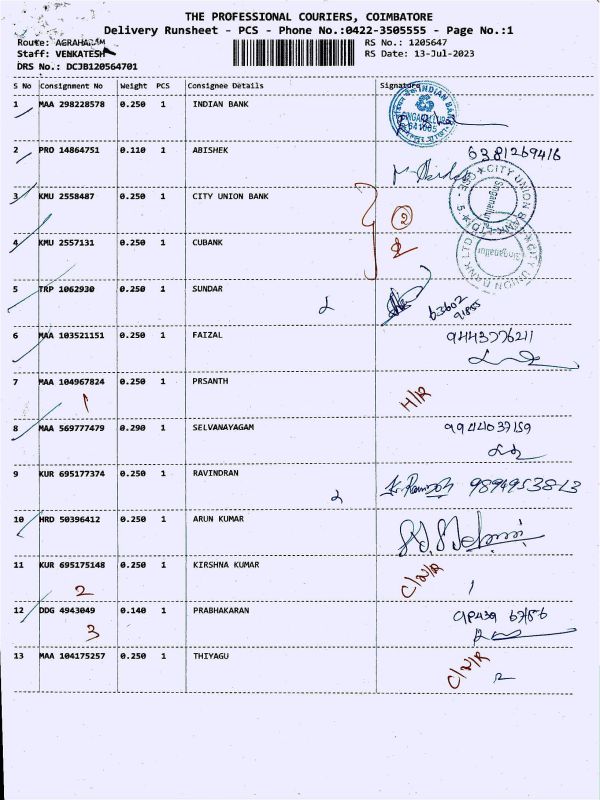 THE PROFESSIONAL COURIERS, COIMBATORE
Delivery Runsheet - PCS - Phone No.:0422-3505555 - Page No.:1
Route: AGRAHARAM RS No.: 1205647
Staff: VENKATESH RS Date: 13-Jul-2023
DRS No.: DCJB120564701
S No Consignment No Weight PCS Consignee Details Signature
1 MAA 298228578 0.250 1 INDIAN BANK
INDIAN BANK
641005
2 PRO 14864751 0.110 1 ABISHEK 6381269416
3 KMU 2558487 0.250 1 CITY UNION BANK 2
CITY UNION BANK
Singanallur
4 KMU 2557131 0.250 1 CUBANK
CITY UNION BANK LTD
Singanallur
5 TRP 1062930 0.250 1 SUNDAR
6 MAA 103521151 0.250 1 FAIZAL 9443776211
7 MAA 104967824 0.250 1 PRSANTH H/R
1
8 MAA 569777479 0.290 1 SELVANAYAGAM 9944037159
9 KUR 695177374 0.250 1 RAVINDRAN 9894953813
10 HRD 50396412 0.250 1 ARUN KUMAR
11 KUR 695175148 0.250 1 KIRSHNA KUMAR C/N/R
2
12 DDG 4943049 0.140 1 PRABHAKARAN
3
13 MAA 104175257 0.250 1 THIYAGU C/N/R